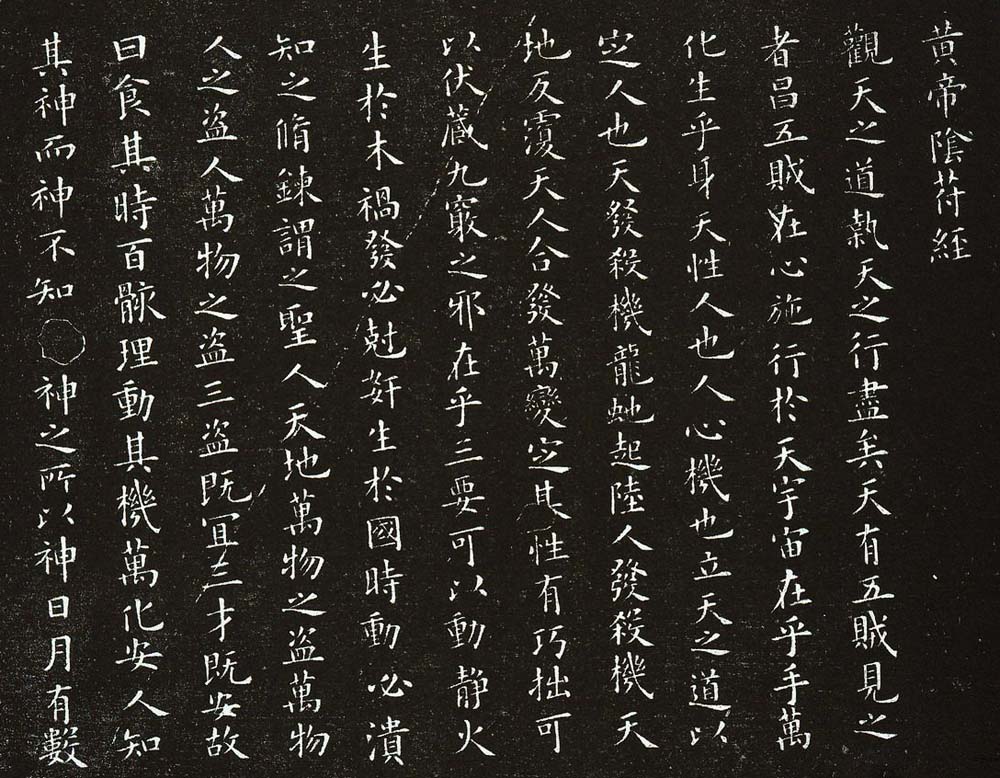 黄帝陰符經
觀天之道執天之行盡矣天有五賊見之
者昌五賊在心施行於天宇宙在乎手萬
化生乎身天性人也人心機也立天之道以
定人也天發殺機龍虵起陸人發殺機天
地反覆天人合發萬變定其性有巧拙可
以伏藏九竅之邪在乎三要可以動静火
生於木禍發必尅奸生於國時動必潰
知之脩鍊謂之聖人天地萬物之盜萬物
人之盜人萬物之盜三盜既冝三才既安故
曰食其時百骸理動其機萬化安人知
其神而神不知神之所以神日月有數